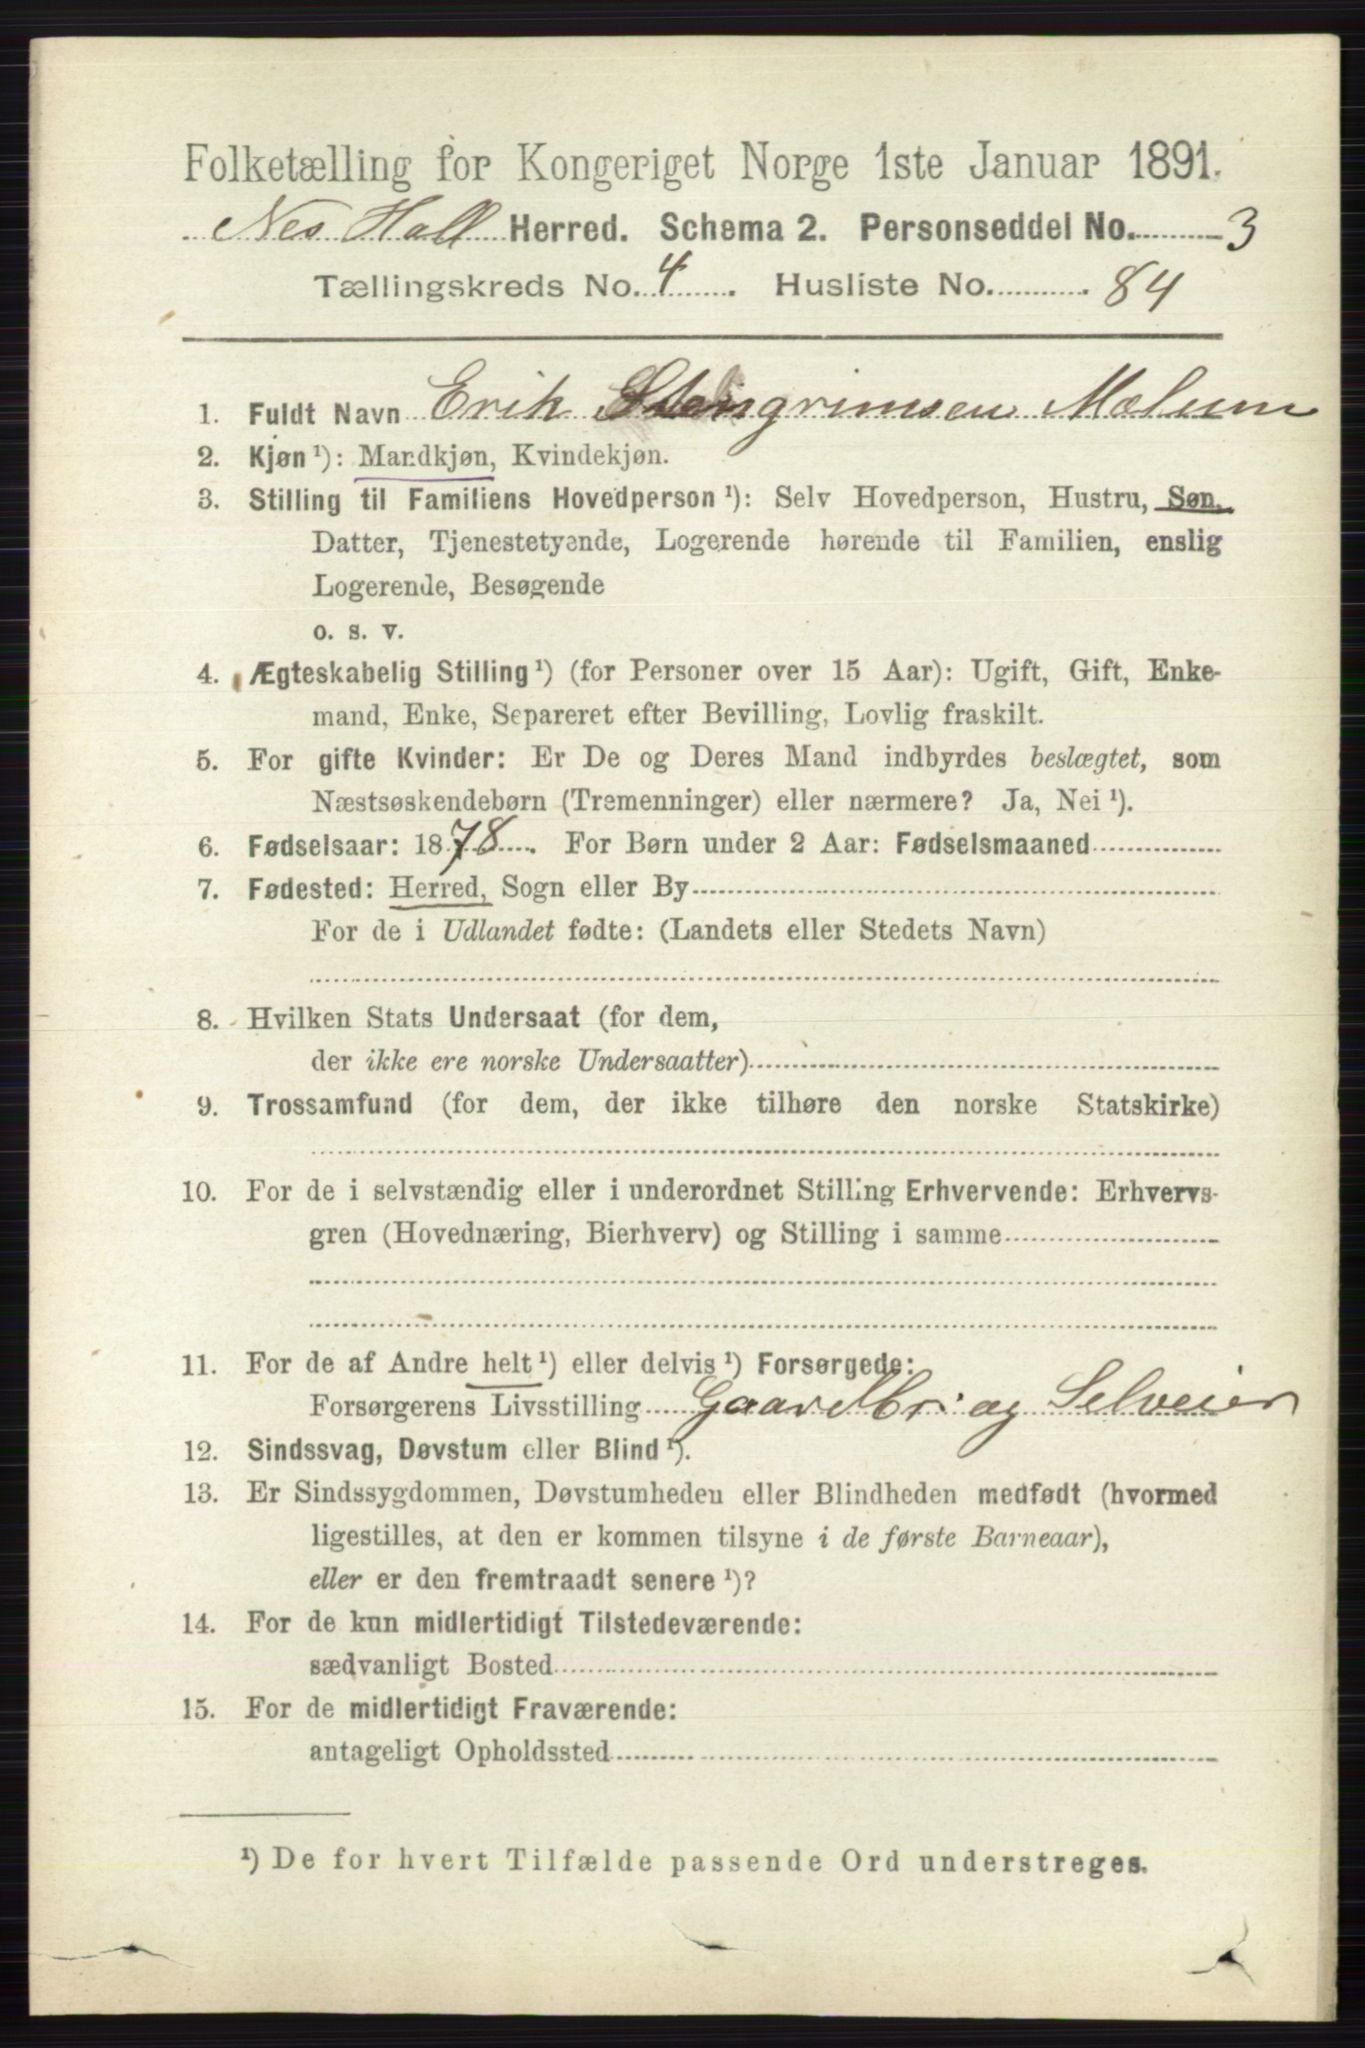 Folketælling for Kongeriget Norge 1ste Januar 1891.
Nes Hall Herred. Schema 2. Personseddel No. 3
Tællingskreds No. 4. Husliste No. 84
1. Fuldt Navn Erik Stengrimsen Mælum
2. Kjøn ¹): Mandkjøn, Kvindekjøn.
3. Stilling til Familiens Hovedperson ¹): Selv Hovedperson, Hustru, Søn,
Datter, Tjenestetyende, Logerende hørende til Familien, enslig
Logerende, Besøgende
o. s. v.
4. Ægteskabelig Stilling ¹) (for Personer over 15 Aar): Ugift, Gift, Enke-
mand, Enke, Separeret efter Bevilling, Lovlig fraskilt.
5. For gifte Kvinder: Er De og Deres Mand indbyrdes beslægtet, som
Næstsøskendebørn (Tremenninger) eller nærmere? Ja, Nei ¹).
6. Fødselsaar: 1878. For Børn under 2 Aar: Fødselsmaaned
7. Fødested: Herred, Sogn eller By
For de i Udlandet fødte: (Landets eller Stedets Navn)
8. Hvilken Stats Undersaat (for dem,
der ikke ere norske Undersaatter)
9. Trossamfund (for dem, der ikke tilhøre den norske Statskirke)
10. For de i selvstændig eller i underordnet Stilling Erhvervende: Erhvervs-
gren (Hovednæring, Bierhverv) og Stilling i samme
11. For de af Andre helt ¹) eller delvis ¹) Forsørgede:
Forsørgerens Livsstilling Gaardbr. og Selveier
12. Sindssvag, Døvstum eller Blind ¹).
13. Er Sindssygdommen, Døvstumheden eller Blindheden medfødt (hvormed
ligestilles, at den er kommen tilsyne i de første Barneaar),
eller er den fremtraadt senere ¹)?
14. For de kun midlertidigt Tilstedeværende:
sædvanligt Bosted
15. For de midlertidigt Fraværende:
antageligt Opholdssted
¹) De for hvert Tilfælde passende Ord understreges.